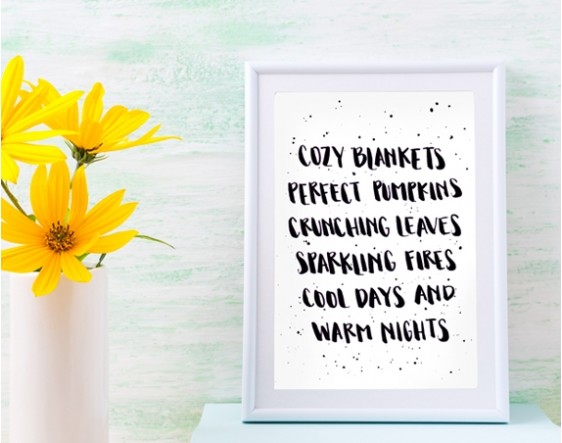 COZY BLANKETS
PERFECT PUMPKINS
CRUNCHING LEAVES
SPARKLING FIRES
COOL DAYS AND
WARM NIGHTS